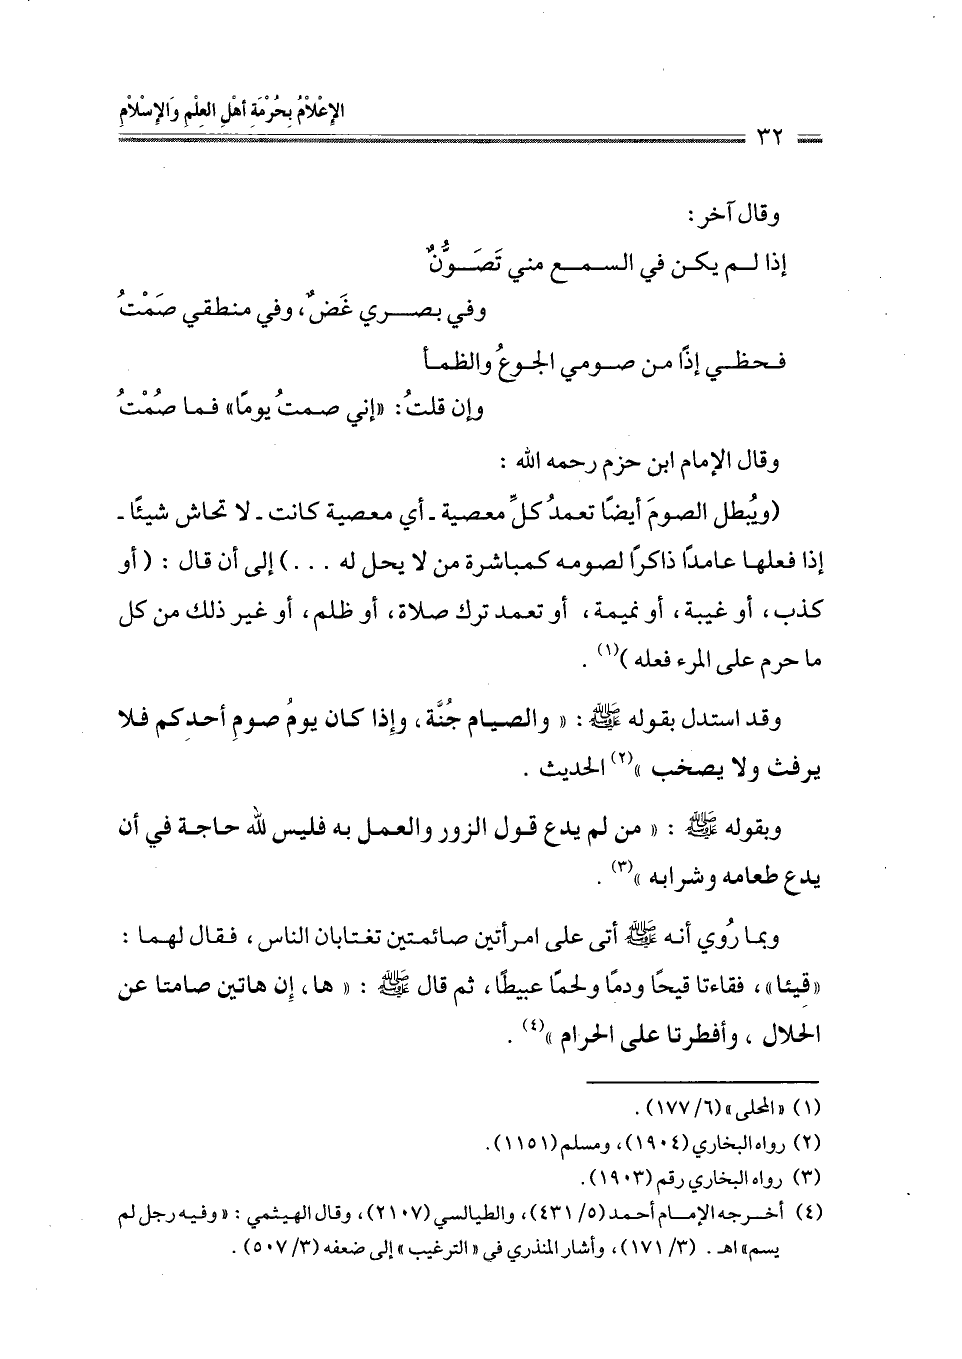 الإِعْلاَمُ بِحُرْمَةِ أَهْلِ العِلْمِ وَالإِسْلاَمِ
٣٢
وقال آخر :
إذا لم يكن في السمع مني تَصَوُّنٌ
وفي بصري غَضٌ، وفي منطقي صَمْتُ
فحظي إذًا من صومي الجوعُ والظمأ
وإن قلتُ: «إني صمتُ يومًا» فما صُمْتُ
وقال الإمام ابن حزم رحمه الله :
(ويُبطل الصومَ أيضًا تعمدُ كلِّ معصية ـ أي معصية كانت ـ لا تحاش شيئًا ـ
إذا فعلها عامدًا ذاكرًا لصومه كمباشرة من لا يحل له ...) إلى أن قال : (أو
كذب، أو غيبة، أو نميمة، أو تعمد ترك صلاة، أو ظلم، أو غير ذلك من كل
ما حرم على المرء فعله )(١) .
وقد استدل بقوله ﷺ : « والصيام جُنَّة، وإذا كان يومُ صومِ أحدِكم فلا
يرفث ولا يصخب »(٢) الحديث .
وبقوله ﷺ : « من لم يدع قول الزور والعمل به فليس لله حاجة في أن
يدع طعامه وشرابه »(٣) .
وبما رُوي أنه ﷺ أتى على امرأتين صائمتين تغتابان الناس، فقال لهما :
«قيئا»، فقاءتا قيحًا ودمًا ولحمًا عبيطًا، ثم قال ﷺ : « ها، إن هاتين صامتا عن
الحلال ، وأفطرتا على الحرام »(٤) .
(١) «المحلى» (٦/ ١٧٧) .
(٢) رواه البخاري (١٩٠٤)، ومسلم (١١٥١).
(٣) رواه البخاري رقم (١٩٠٣).
(٤) أخرجه الإمام أحمد (٥/ ٤٣١)، والطيالسي (٢١٠٧)، وقال الهيثمي : «وفيه رجل لم
يسم» اهـ . (٣/ ١٧١)، وأشار المنذري في «الترغيب» إلى ضعفه (٣/ ٥٠٧) .